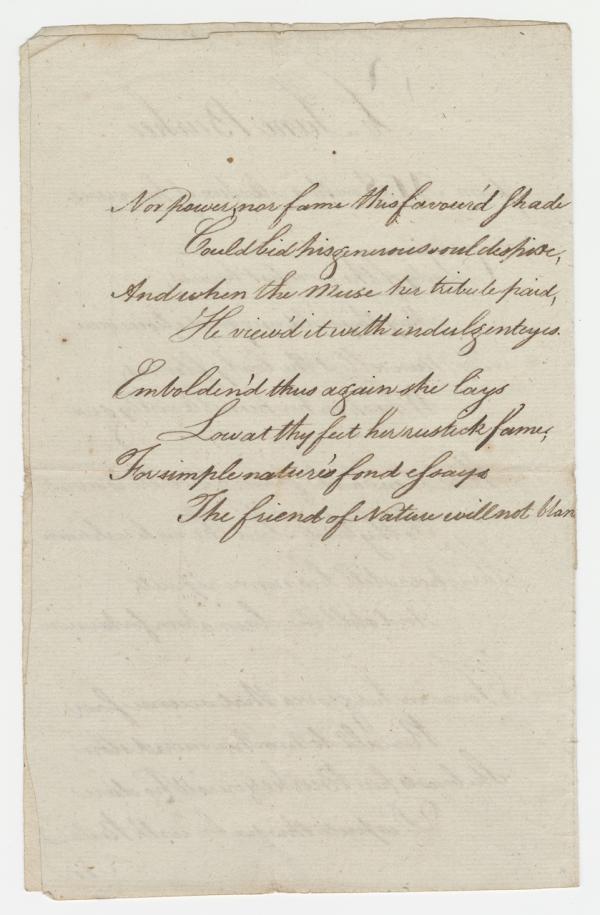 Nor power, nor fame this favour'd Shade
Could bid his generous soul despise,
And when the Muse her tribute paid,
He view'd it with indulgent eyes.
Embolden'd thus again she lays
Low at thy feet her rustick fame,
For simple nature's fond essays
The friend of Nature will not blam